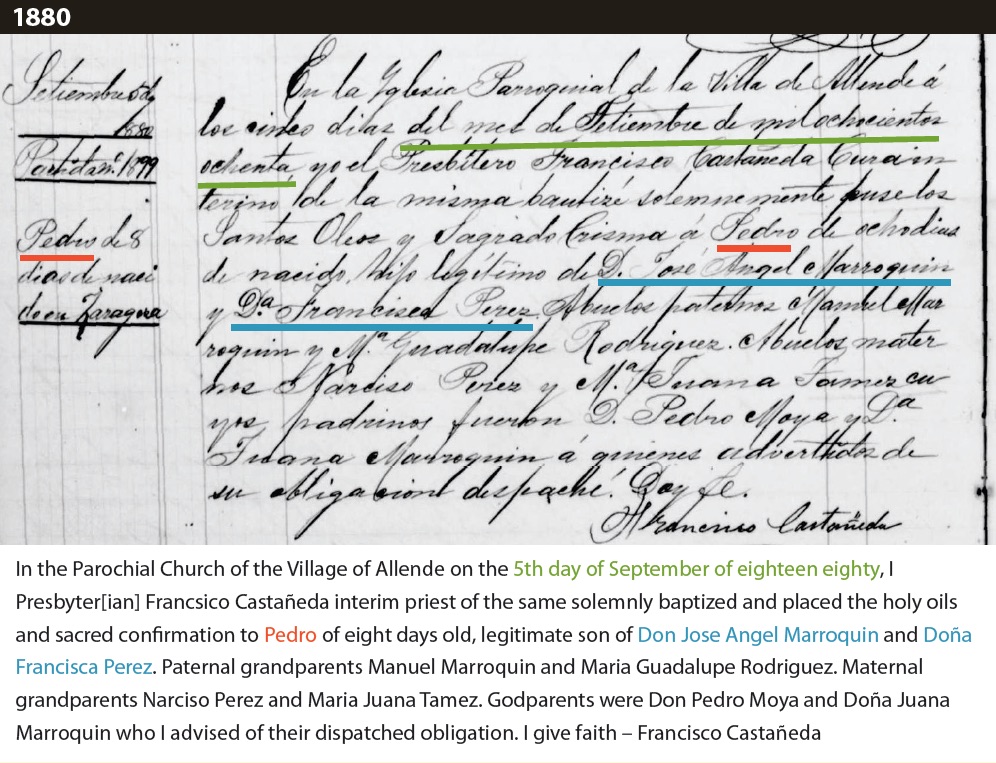 1880
Setiembre 5 de
1880
Partida nº. 1899
Pedro de 8
dias de naci
do en Zaragoza
En la Yglesia Parroquial de la Villa de Allende á
los cinco dias del mes de Setiembre de mil ochocientos
ochenta yo el Presbítero Francisco Castañeda Cura in
terino de la misma bautizé solemnemente puse los
Santos Oleos y Sagrado Crisma á Pedro de ocho dias
de nacido, hijo legítimo de D. José Angel Marroquin
y D.ª Francisca Perez. Abuelos paternos Manuel Mar
roquin y M.ª Guadalupe Rodriguez. Abuelos mater
nos Narciso Perez y M.ª Juana Tamez cu
yos padrinos fueron D. Pedro Moya y D.ª
Juana Marroquin á quienes advertidos de
su obligacion despaché. Doy fe.
Francisco Castañeda
In the Parochial Church of the Village of Allende on the 5th day of September of eighteen eighty, I
Presbyter[ian] Francsico Castañeda interim priest of the same solemnly baptized and placed the holy oils
and sacred confirmation to Pedro of eight days old, legitimate son of Don Jose Angel Marroquin and Doña
Francisca Perez. Paternal grandparents Manuel Marroquin and Maria Guadalupe Rodriguez. Maternal
grandparents Narciso Perez and Maria Juana Tamez. Godparents were Don Pedro Moya and Doña Juana
Marroquin who I advised of their dispatched obligation. I give faith – Francisco Castañeda